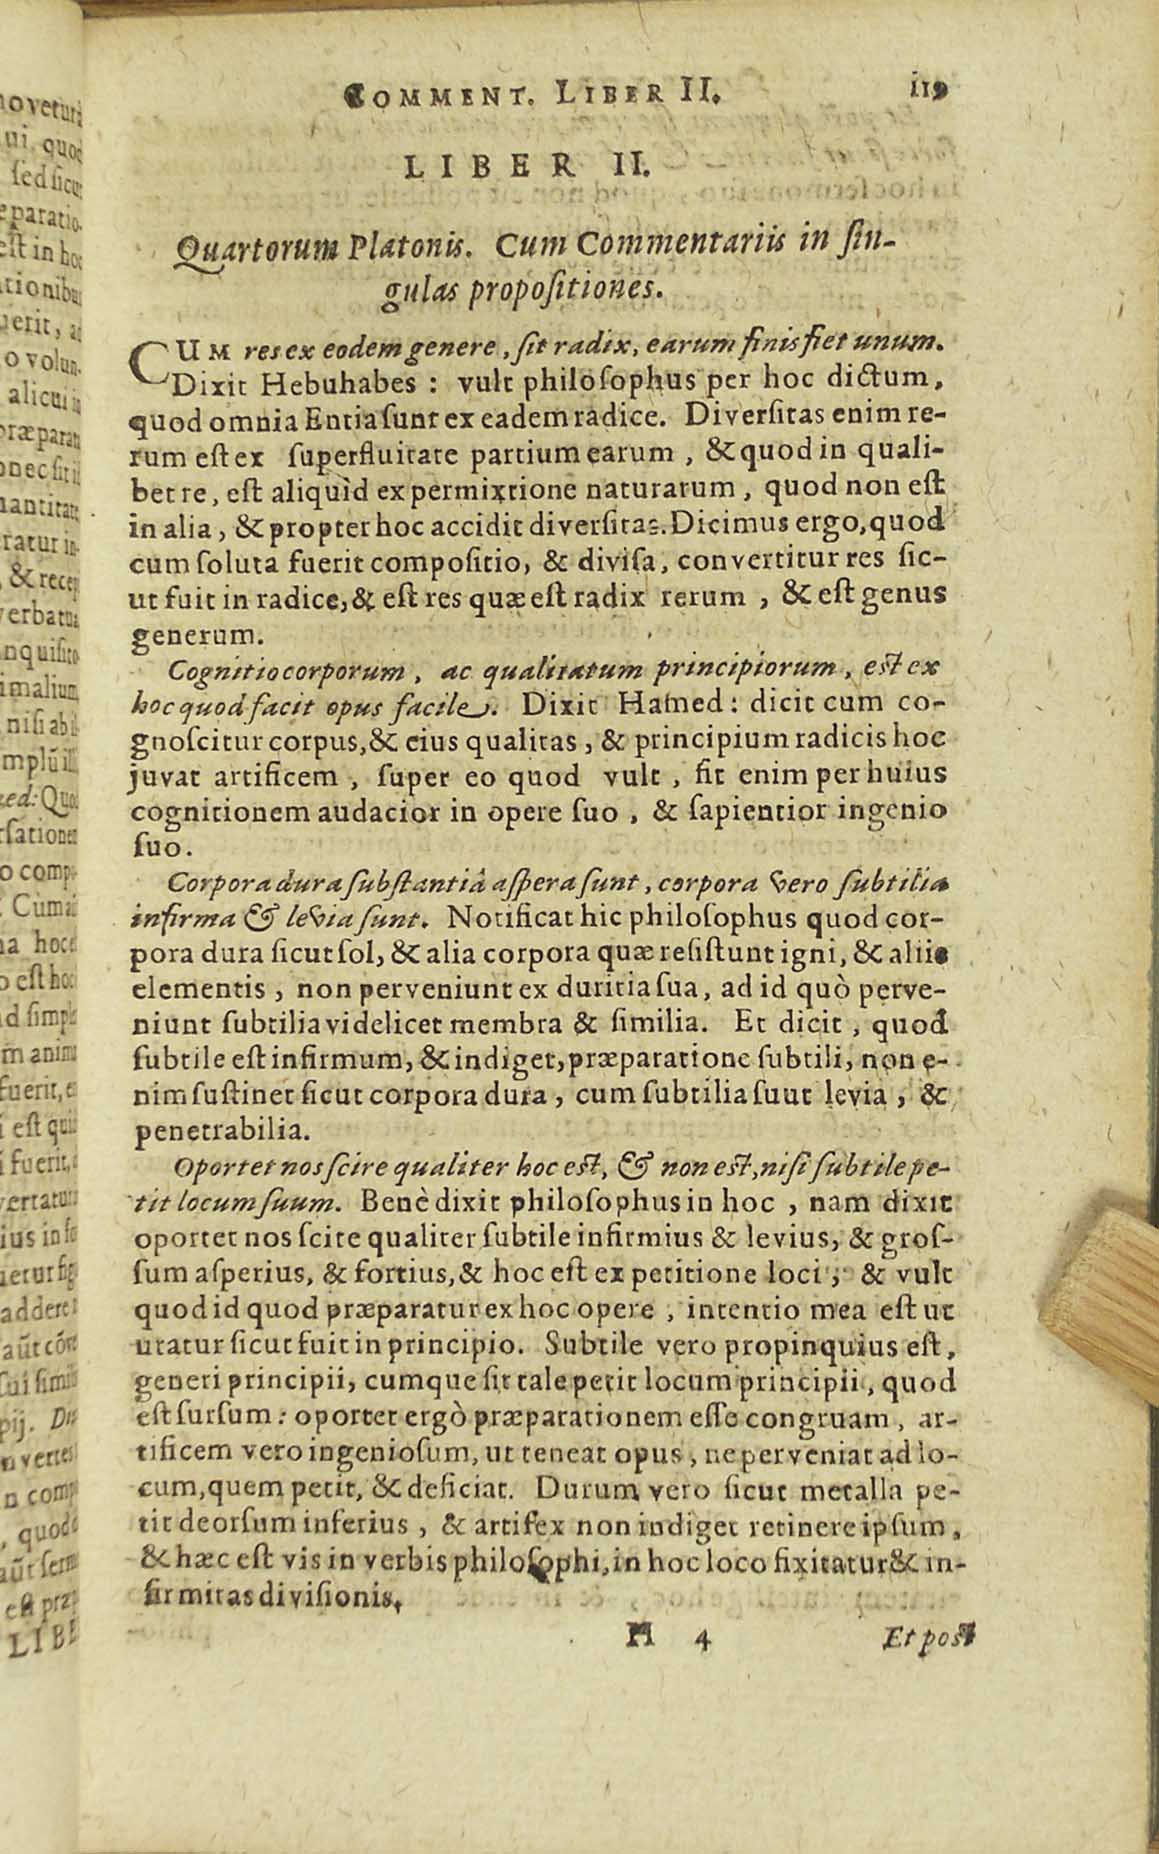 COMMENT. LIBER II. 119
LIBER II.
Quartorum Platonis. Cum Commentariis in ſin-
gulas propoſitiones.
CUM res ex eodem genere, ſit radix, earum finis fiet unum.
Dixit Hebuhabes: vult philoſophus per hoc dictum,
quod omnia Entia ſunt ex eadem radice. Diverſitas enim re-
rum eſt ex ſuperfluitate partium earum, & quod in quali-
bet re, eſt aliquìd ex permixtione naturarum, quod non eſt
in alia, & propter hoc accidit diverſitas. Dicimus ergo, quod
cum ſoluta fuerit compoſitio, & diviſa, convertitur res ſic-
ut fuit in radice, & eſt res quæ eſt radix rerum, & eſt genus
generum.
Cognitio corporum, ac qualitatum principiorum, eſt ex
hoc quod facit opus facile. Dixit Hamed: dicit cum co-
gnoſcitur corpus, & eius qualitas, & principium radicis hoc
juvat artificem, ſuper eo quod vult, fit enim per huius
cognitionem audacior in opere ſuo, & ſapientior ingenio
ſuo.
Corpora dura ſubſtantiâ aſpera ſunt, corpora vero ſubtilia
infirma & levia ſunt. Notificat hic philoſophus quod cor-
pora dura ſicut ſol, & alia corpora quæ reſiſtunt igni, & aliis
elementis, non perveniunt ex duritia ſua, ad id quò perve-
niunt ſubtilia videlicet membra & ſimilia. Et dicit, quod
ſubtile eſt infirmum, & indiget, præparatione ſubtili, non e-
nim ſuſtinet ſicut corpora dura, cum ſubtilia ſuut levia, &
penetrabilia.
Oportet nos ſcire qualiter hoc eſt, & non eſt, niſi ſubtile pe-
tit locum ſuum. Benè dixit philoſophus in hoc, nam dixit
oportet nos ſcire qualiter ſubtile infirmius & levius, & groſ-
ſum aſperius, & fortius, & hoc eſt ex petitione loci, & vult
quod id quod præparatur ex hoc opere, intentio mea eſt ut
utatur ſicut fuit in principio. Subtile vero propinquius eſt,
generi principii, cumque ſit tale petit locum principii, quod
eſt ſurſum: oportet ergò præparationem eſſe congruam, ar-
tificem vero ingenioſum, ut teneat opus, ne perveniat ad lo-
cum, quem petit, & deficiat. Durum vero ſicut metalla pe-
tit deorſum inferius, & artifex non indiget retinere ipſum,
& hæc eſt vis in verbis philoſophi, in hoc loco fixitatur & in-
firmitas diviſionis.
H 4 Et poſt